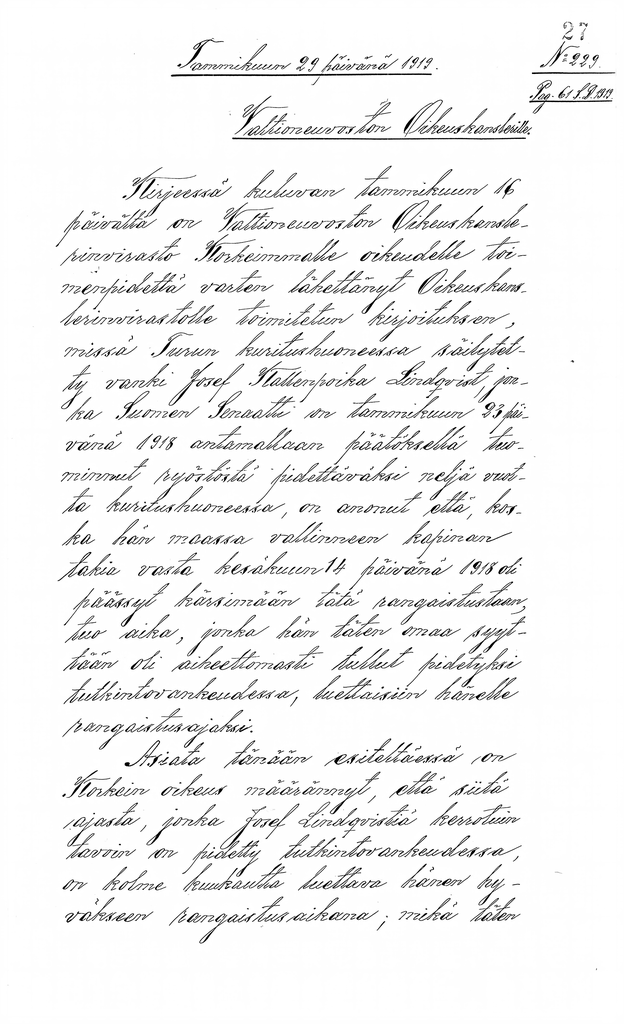 27
Tammikuun 29 päivänä 1919.
No 229.
Pag. 61 S.D. 1919
Valtioneuvoston Oikeuskanslerille.
Kirjeessä kuluvan tammikuun 16
päivältä on Valtioneuvoston Oikeuskansle-
rinvirasto Korkeimmalle oikeudelle toi-
menpidettä varten lähettänyt Oikeuskans-
lerinvirastolle toimitetun kirjoituksen,
missä Turun kuritushuoneessa säilytet-
ty vanki Josef Kallenpoika Lindqvist, jon-
ka Suomen Senaatti on tammikuun 23 päi-
vänä 1918 antamallaan päätöksellä tuo-
minnut ryöstöstä pidettäväksi neljä vuot-
ta kuritushuoneessa, on anonut että, kos-
ka hän maassa vallinneen kapinan
takia vasta kesäkuun 14 päivänä 1918 oli
päässyt kärsimään tätä rangaistustaan,
tuo aika, jonka hän täten omaa syyt-
tään oli aiheettomasti tullut pidetyksi
tutkintovankeudessa, luettaisiin hänelle
rangaistusajaksi.
Asiata tänään esiteltäessä on
Korkein oikeus määrännyt, että siitä
ajasta, jonka Josef Lindqvistiä kerrotuin
tavoin on pidetty tutkintovankeudessa,
on kolme kuukautta luettava hänen hy-
väkseen rangaistusaikana; mikä täten